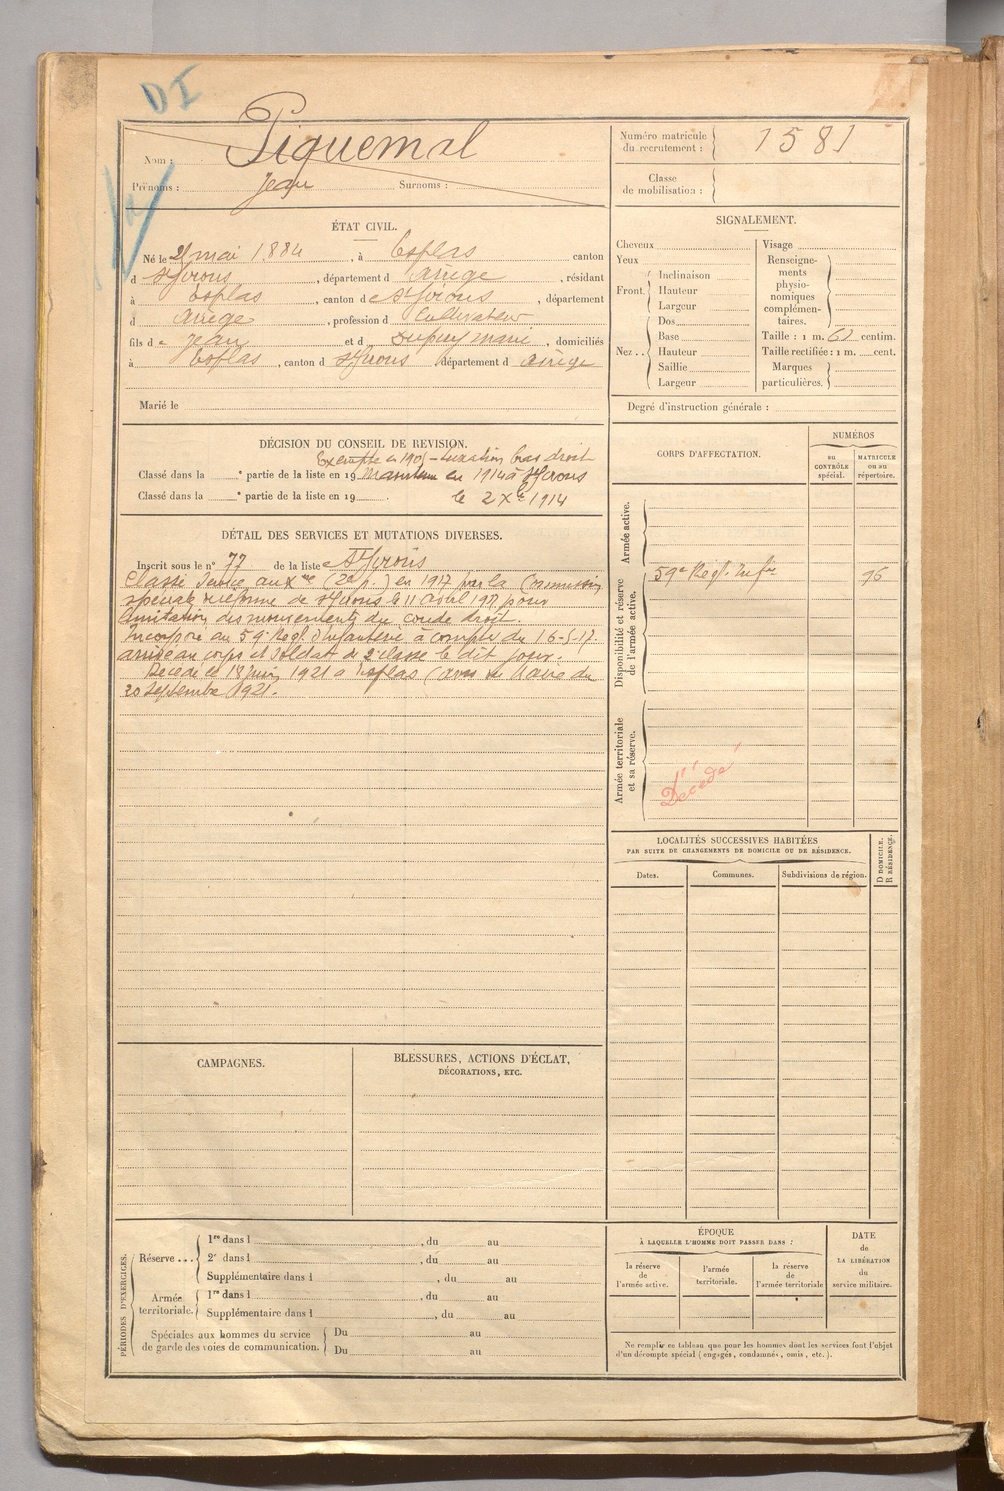 DI
Nom : Piquemal
Prénoms : Jean Surnoms :
Numéro matricule du recrutement : 1581
Classe de mobilisation :
ÉTAT CIVIL.
Né le 21 mai 1884, à Esplas canton
d St Girons, département d Ariège, résidant
à Esplas, canton de St Girons, département
d Ariège, profession d Cultivateur
fils de Jean et d Dupuy Marie, domiciliés
à Esplas, canton d St Girons département d Ariège
Marié le
SIGNALEMENT.
Cheveux
Yeux
Front. Inclinaison
Hauteur
Largeur
Nez.. Dos
Base
Hauteur
Saillie
Largeur
Visage
Renseignements physionomiques complémentaires.
Taille : 1 m. 61 centim.
Taille rectifiée : 1 m. cent.
Marques particulières.
Degré d'instruction générale :
DÉCISION DU CONSEIL DE REVISION.
Exempté en 1905 - luxation bras droit
Classé dans la e partie de la liste en 19 Maintenu en 1914 à St Girons
Classé dans la e partie de la liste en 19 le 2 Xbre 1914
DÉTAIL DES SERVICES ET MUTATIONS DIVERSES.
Inscrit sous le n° 77 de la liste St Girons
Classé Service aux re (2e p.) en 1917 par la Commission
spéciale réforme de St Girons le 11 avril 1917 pour
limitation des mouvements du coude droit.
Incorporé au 59e Régt d'Infanterie à compter du 16-5-17
arrivé au corps et soldat de 2e classe le dit jour.
Décédé le 18 juin 1921 à Esplas (avis du Maire du
20 septembre 1921.
CORPS D'AFFECTATION.
NUMÉROS
au CONTRÔLE spécial.
MATRICULE ou au répertoire.
Armée active.
Disponibilité et réserve de l'armée active.
59e Régt. Infie 96
Armée territoriale et sa réserve.
Décédé
LOCALITÉS SUCCESSIVES HABITÉES
PAR SUITE DE CHANGEMENTS DE DOMICILE OU DE RÉSIDENCE.
Dates.
Communes.
Subdivisions de région.
D DOMICILE.
R RÉSIDENCE.
CAMPAGNES.
BLESSURES, ACTIONS D'ÉCLAT,
DÉCORATIONS, ETC.
PÉRIODES D'EXERCICES.
Réserve ... 1re dans l , du au
2e dans l , du au
Supplémentaire dans l , du au
Armée territoriale. 1re dans l , du au
Supplémentaire dans l , du au
Spéciales aux hommes du service Du au
de garde des voies de communication. Du au
ÉPOQUE
À LAQUELLE L'HOMME DOIT PASSER DANS :
la réserve de l'armée active.
l'armée territoriale.
la réserve de l'armée territoriale
DATE
de
LA LIBÉRATION
du
service militaire.
Ne remplir ce tableau que pour les hommes dont les services font l'objet
d'un décompte spécial (engagés, condamnés, omis, etc.).